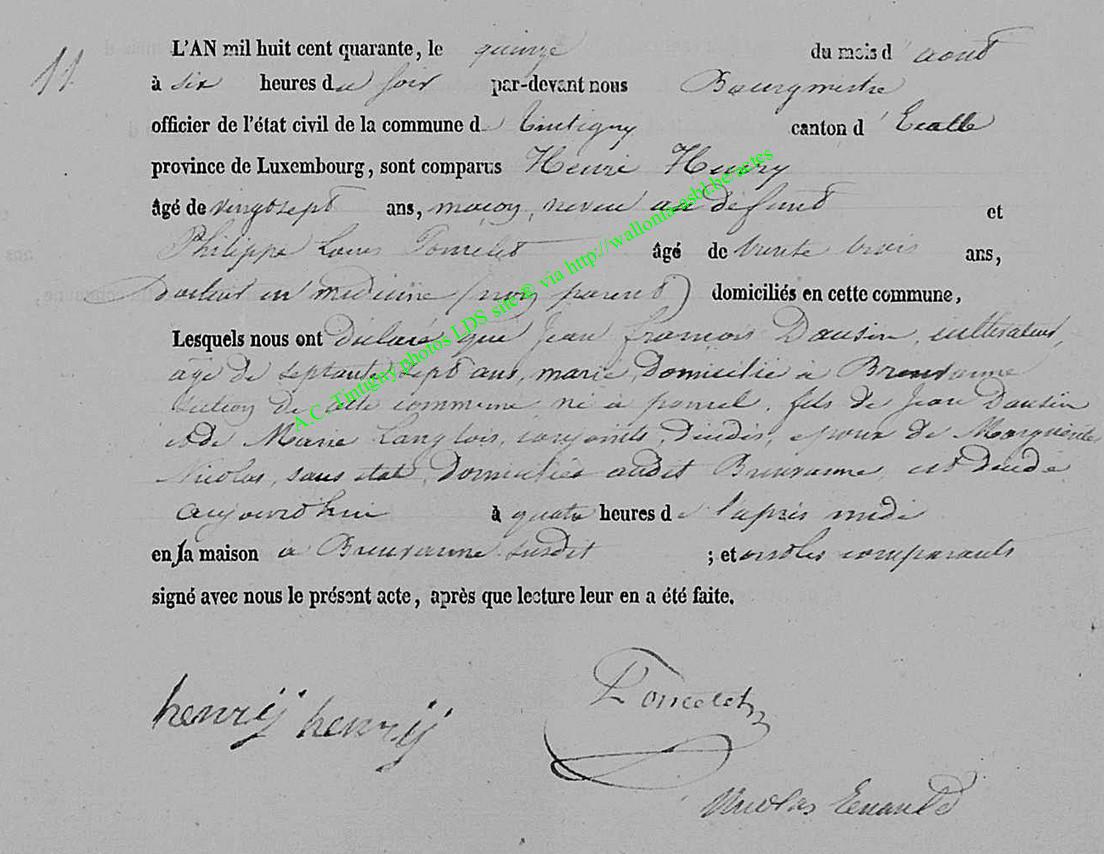 11
L'AN mil huit cent quarante, le quinze du mois d'aout
à six heures du soir par-devant nous Bourgmestre
officier de l'état civil de la commune de Tintigny canton d'Etalle
province de Luxembourg, sont comparus Henri Henry
âgé de vingt sept ans, maçon, neveu au défunt et
Philippe Louis Poncelet âgé de trente trois ans,
Docteur en médecine (non parent) domiciliés en cette commune,
Lesquels nous ont déclaré que Jean François Dausin, cultivateur,
âgé de septante sept ans, marié, domicilié à Breuvanne
section de cette commune, né à, fils de Jean Dausin
et de Marie Langlois, conjoints, décédés, epoux de Marguerite
Nicolas, sans état, domiciliée audit Breuvanne, est décédé
aujourd'hui à quatre heures de l'après midi
en la maison à Breuvanne susdit ; et ont les comparants
signé avec nous le présent acte, après que lecture leur en a été faite.
henrij henrij
Poncelet
Nicolas
A.C. Tintigny photos LDS site © via http://wallonia-asbl.be/actes